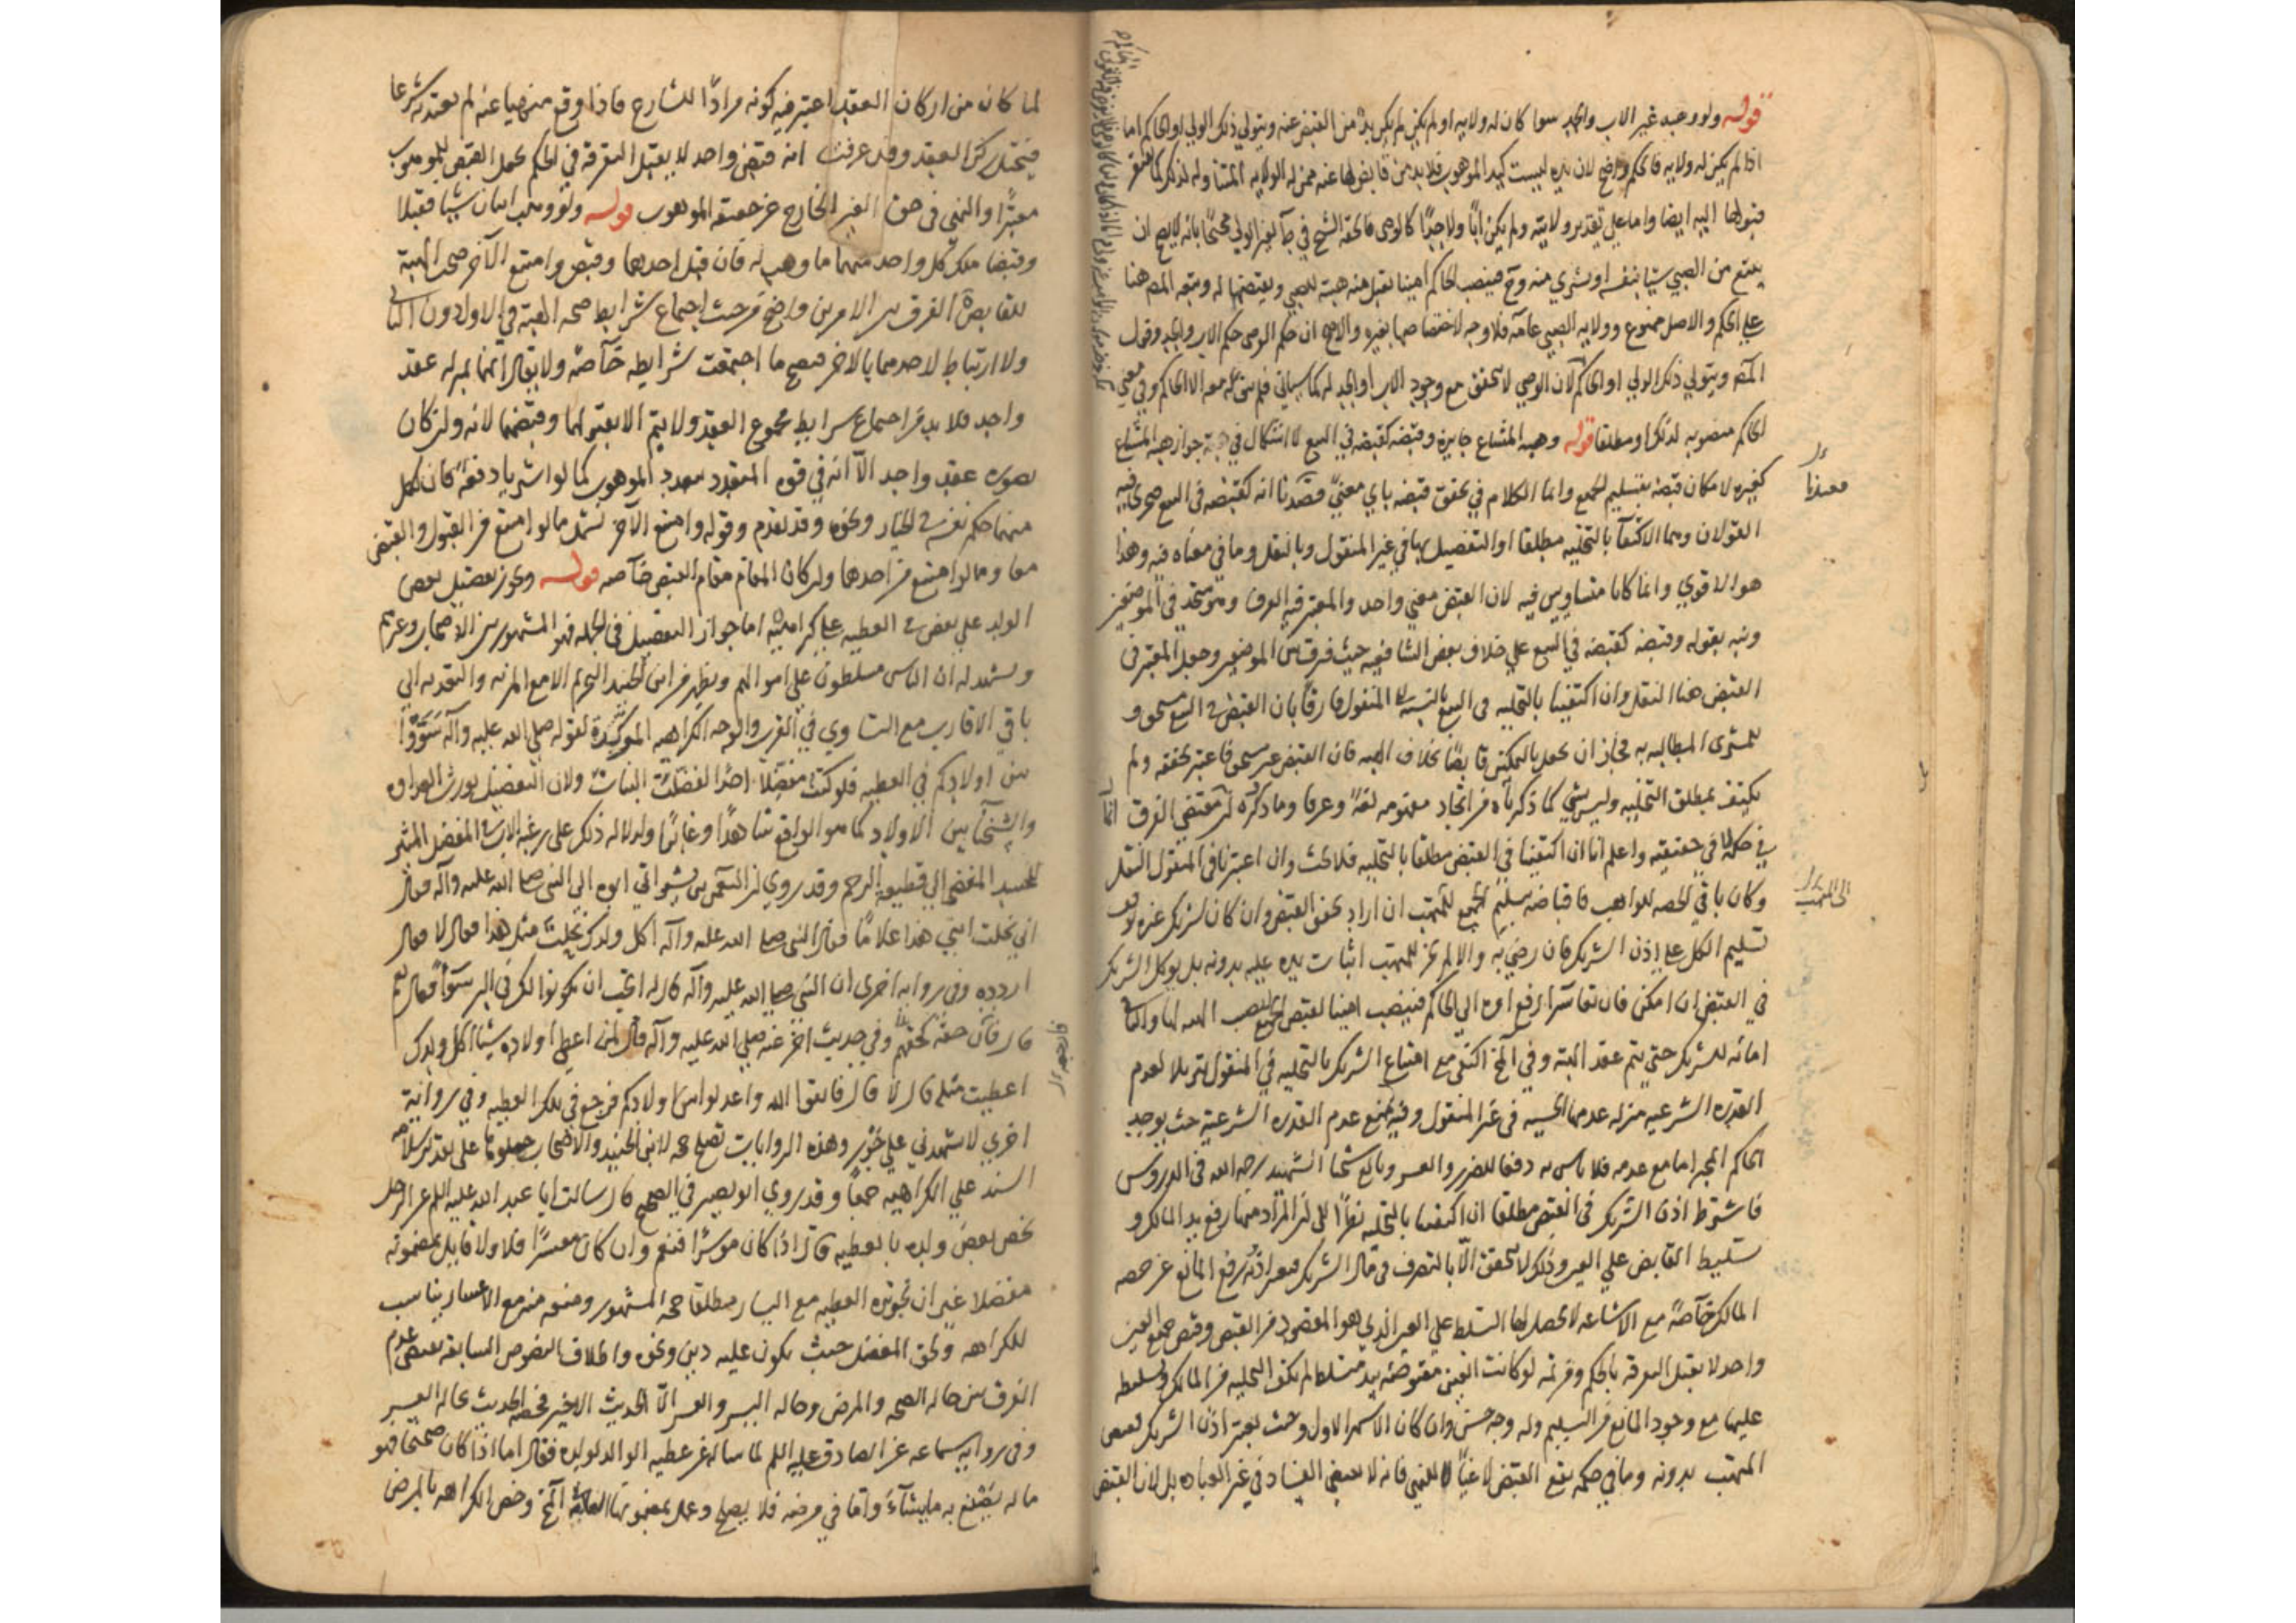 قوله ولو وهبه غير الاب والجد سوا كان له ولايه او لم يكن لم يكن بد من القبض عنه ويتولي ذلك الولي او الحاكم اما
اذا لم يكن له ولايه فالحكم واضح لان يده ليست كيد الموهوب فلا بد من قابض لها عنه ممن له الولايه المتناوله لذلك كما يفتقر
قبولها اليه ايضا واما علي تقدير ولايته ولم يكن ابًا ولا جدًا كالوصي فالحقه الشيخ في ط بغير الولي محتجًا بانه لا يصح ان
يبتع من الصبي شيا بنفسه او يشتري منه وح فينصب الحاكم امينا يقبل منه هبته للصبي ويقبضها له وتبعه المص هنا
علي الحكم والاصل ممنوع وولايه الصبي عامه فلا وجه لاختصاصها بغيره والاصح ان حكم الوصي حكم الاب والجد وقول
المص ويتولي ذلك الولي او الحاكم لان الوصي لا يتحقق مع وجود الاب او الجد له كما سياتي فلم يبق معه الا الحاكم وفي معني
الحاكم منصوبه لذلك او مطلقا قوله وهبه المشاع جايزه وقبضه كقبضه في البيع لا اشكال في جواز هبه المشاع
كغيره لامكان قبضه بتسليم الجميع وانما الكلام في تحقق قبضه باي معني وقد ذكرنا انه كقبضه في البيع فيجري فيه
القولان وهما الاكتفآ بالتخليه مطلقا او التفصيل بها في غير المنقول وبالنقل وما في معناه فيه وهذا
هو الاقوي وانما كانا متساويين فيه لان القبض معني واحد والمعتبر فيه العرف وهو متحد في الموضعين
ونبه بقوله وقبضه كقبضه في البيع علي خلاف بعض الشافعيه حيث فرق بين الموضعين وجعل المعتبر في
القبض هنا النقل وان اكتفينا بالتخليه في البيع بالنسبة الى المنقول فارقًا بان القبض في البيع مستحق و
للمشتري المطالبه به فجاز ان يجعل بالتمكين قابضًا بخلاف الهبه فان القبض غير مستحق فاعتبر تحققه ولم
يكتف بمطلق التخليه وليس بشي كما ذكرناه من اتحاد مفهومه لغةً وعرفا وما ذكره لا يقتضي الفرق
في حكمه لا في حقيقته واعلم انا ان اكتفينا في القبض مطلقا بالتخليه فلا بحث وان اعتبرنا في المنقول النقل
وكان باقي الحصه للواهب فاقباضه تسليم الجميع للمتهب ان اراد تحقق القبض وان كان لشريك غيره توقف
تسليم الكل علي اذن الشريك فان رضي به والا لم يجز للمتهب اثبات يده عليه بدونه بل يوكل الشريك
في القبض ان امكن فان تعاسرا رفع امره الي الحاكم فينصب امينا لقبض الجميع نصيب الهبه لها والباقي
امانه للشريك حتي يتم عقد الهبه وفي المخ اكتفي مع امتناع الشريك بالتخليه في المنقول تنزيلا لعدم
القدره الشرعيه منزله عدمها الحسيه في غير المنقول وفيه منع عدم القدره الشرعيه حيث يوجد
الحاكم المجبر اما مع عدمه فلا باس به دفعا للضرر والعسر وبالغ شيخنا الشهيد رحمه الله في الدروس
فاشترط اذن الشريك في القبض مطلقا ان اكتفينا بالتخليه نظرًا الى ان المراد منها رفع يد المالك و
تسليط القابض علي العين وذلك لا يتحقق الا بالتصرف في مال الشريك فيعتبر اذنه برفع المانع عن حصه
المالك خاصةً مع الاشاعه لا يحصل لها التسلط علي العين الذي هو المقصود من القبض وقبض جميع العين
واحد لا يقبل التفرقه بالحكم ومن ثم لو كانت العين مقبوضه بيد متسلط لم يكف التخليه من المالك وتسليطه
عليها مع وجود المانع من التسليم وله وجه حسن وان كان الاشهر الاول وحيث يعتبر اذن الشريك فقبض
المتهب بدونه وما في حكمه يقع القبض لاغيًا لا للنهي فانه لا يقتضي الفساد في غير العباده بل لان القبض
معنيانا
الي المتهب
لما كان من اركان العقد اعتبر فيه كونه مرادًا للشارع فاذا وقع منهيا عنه لم يعتد به شرعا
فيختل ركن العقد وقد عرفت انه قبض واحد لا يقبل التفرقه في الحكم بجعل القبض للموهوب
معتبرًا والنهي في حق الغير الخارج عن حقيقه الموهوب قوله ولو وهب اثنان شيا فقبلا
وقبضا ملك كل واحد منهما ما وهب له فان قبل احدهما وقبض وامتنع الآخر صحت الهبة
للقابض الفرق بين الامرين واضح من حيث اجتماع شرايط صحه الهبة في الاول دون الثاني
ولا ارتباط لاحدهما بالاخر فيصح ما اجتمعت شرايطه خآصة ولا يقال انهما بمنزله عقد
واحد فلا بد من اجتماع شرايط مجموع العقد ولا يتم الا بقبولهما وقبضهما لانه وان كان
بصوره عقد واحد الا انه في قوه المتعدد بتعدد الموهوب كما لو اشتريا دفعةً كان لكل
منهما حكم نفسه في الخيار ونحوه وقد تقدم وقوله وامتنع الآخر يشمل ما لو امتنع من القبول والقبض
معا وما لو امتنع من احدهما وان كان المقام مقام القبض خآصه قوله ويجوز تفضيل بعض
الولد علي بعض في العطيه علي كراهيه اما جواز التفضيل في الجمله فهو المشهور بين الاصحاب وغيرهم
ويشهد له ان الناس مسلطون علي اموالهم ويظهر من ابن الجنيد التحريم الا مع المزيه والتعديه الي
باقي الاقارب مع التساوي في القرب والوجه الكراهيه الموكدة لقوله صلي الله عليه وآله سَوّوا
بين اولادكم في العطيه فلو كنت مفضلًا احدًا لفضلت البنات ولان التفضيل يورث العداوه
والشحنآ بين الاولاد كما هو الواقع شاهدًا وغابرًا ولدلاله ذلك على رغبه الاب في المفضل المثير
للحسد المفضي الي قطيعة الرحم وقد روي ان النعمن بن بشير اتي ابوه الي النبي صلي الله عليه وآله فقال
اني نحلت ابني هذا غلامًا فقال النبي صلي الله عليه وآله اكل ولدك نحلت مثل هذا فقال لا فقال
اردده وفي روايه اخري ان النبي صلي الله عليه وآله قال له اتحب ان يكونوا لك في البر سوآءً فقال نعم
قال فارجعه وفي حديث اخر عنه صلي الله عليه وآله قال لمن اعطي اولاده شيئا اكل ولدك
اعطيت مثله قال لا قال فاتقوا الله واعدلوا بين اولادكم فرجع في تلك العطيه وفي رواية
اخري لا تشهدني علي جَوْر وهذه الروايات تصلح حجه لابن الجنيد والاصحاب حملوها على تقدير سلامه
السند علي الكراهيه جمعًا وقد روي ابو بصير في الصحيح قال سالت ابا عبد الله عليه السلم عن الرجل
يخص بعض ولده بالعطيه قال اذا كان موسرًا فنعم وان كان معسرًا فلا ولا قايل بمضمونه
مفصلا غير ان تجويزه العطيه مع اليسار مطلقا حجه المشهور ومنعه منه مع الاعسار يناسب
للكراهه ونحن المفضل حيث يكون عليه دين ونحوه واطلاق النصوص السابقه يقتضي عدم
الفرق بين حاله الصحه والمرض وحاله اليسر والعسر الا الحديث الاخير فخصه الحديث بحاله العسر
وفي روايه سماعه عن الصادق عليه السلم لما ساله عن عطيه الوالد لولده فقال اما اذا كان صحيحًا فهو
ماله يصنع به ما يشآء واما في مرضه فلا يصلح وعمل بمضمونها العلامه في المخ وخص الكراهه بالمرض